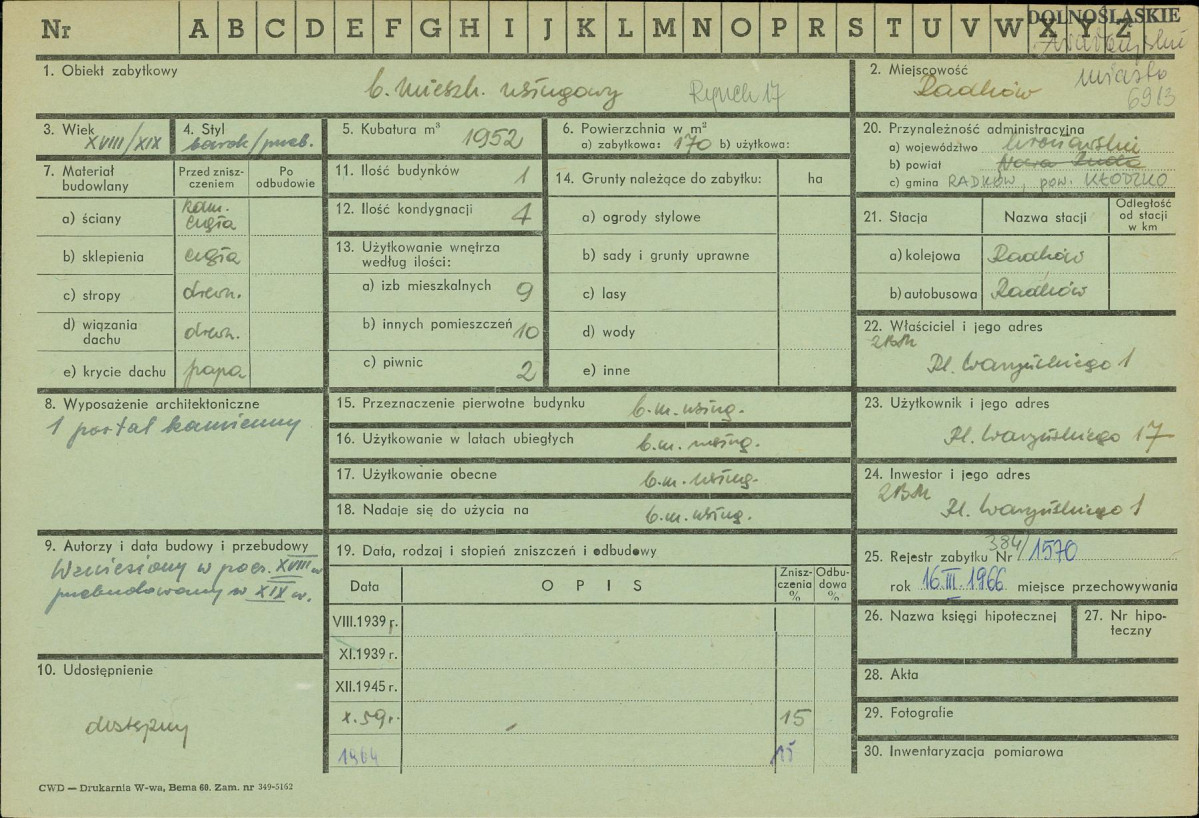 Nr A B C D E F G H I J K L M N O P R S T U V W X Y Z
DOLNOŚLĄSKIE
miasto
6913
1. Obiekt zabytkowy
b. mieszk. usługowy Rynek 17
2. Miejscowość
Radków
3. Wiek
XVIII/XIX
4. Styl
barok/przeb.
5. Kubatura m³ 1952
6. Powierzchnia w m²
a) zabytkowa: 170 b) użytkowa:
20. Przynależność administracyjna
a) województwo wrocławskie
b) powiat Nowa Ruda
c) gmina RADKÓW, pow. KŁODZKO
7. Materiał budowlany
Przed zniszczeniem
Po odbudowie
a) ściany kam. cegła
b) sklepienia cegła
c) stropy drewn.
d) wiązania dachu drewn.
e) krycie dachu papa
11. Ilość budynków 1
12. Ilość kondygnacji 4
13. Użytkowanie wnętrza
według ilości:
a) izb mieszkalnych 9
b) innych pomieszczeń 10
c) piwnic 2
14. Grunty należące do zabytku: ha
a) ogrody stylowe
b) sady i grunty uprawne
c) lasy
d) wody
e) inne
21. Stacja Nazwa stacji Odległość od stacji w km
a) kolejowa Radków
b) autobusowa Radków
22. Właściciel i jego adres
ZBM
Pl. Waryńskiego 1
8. Wyposażenie architektoniczne
1 portal kamienny
15. Przeznaczenie pierwotne budynku b.m. usług.
16. Użytkowanie w latach ubiegłych b.m. usług.
17. Użytkowanie obecne b.m. usług.
18. Nadaje się do użycia na b.m. usług.
23. Użytkownik i jego adres
Pl. Waryńskiego 17
24. Inwestor i jego adres
ZBM
Pl. Waryńskiego 1
9. Autorzy i data budowy i przebudowy
Wzniesiony w pocz. XVIII w
przebudowany w XIX w.
19. Data, rodzaj i stopień zniszczeń i odbudowy
Data OPIS Zniszczenia % Odbudowa %
VIII.1939 r.
XI.1939 r.
XII.1945 r.
X.59 r. 15
1964 15
25. Rejestr zabytku Nr 384/1570
rok 16.III.1966 miejsce przechowywania
26. Nazwa księgi hipotecznej
27. Nr hipoteczny
10. Udostępnienie
dostępny
28. Akta
29. Fotografie
30. Inwentaryzacja pomiarowa
CWD — Drukarnia W-wa, Bema 60. Zam. nr 349-5162